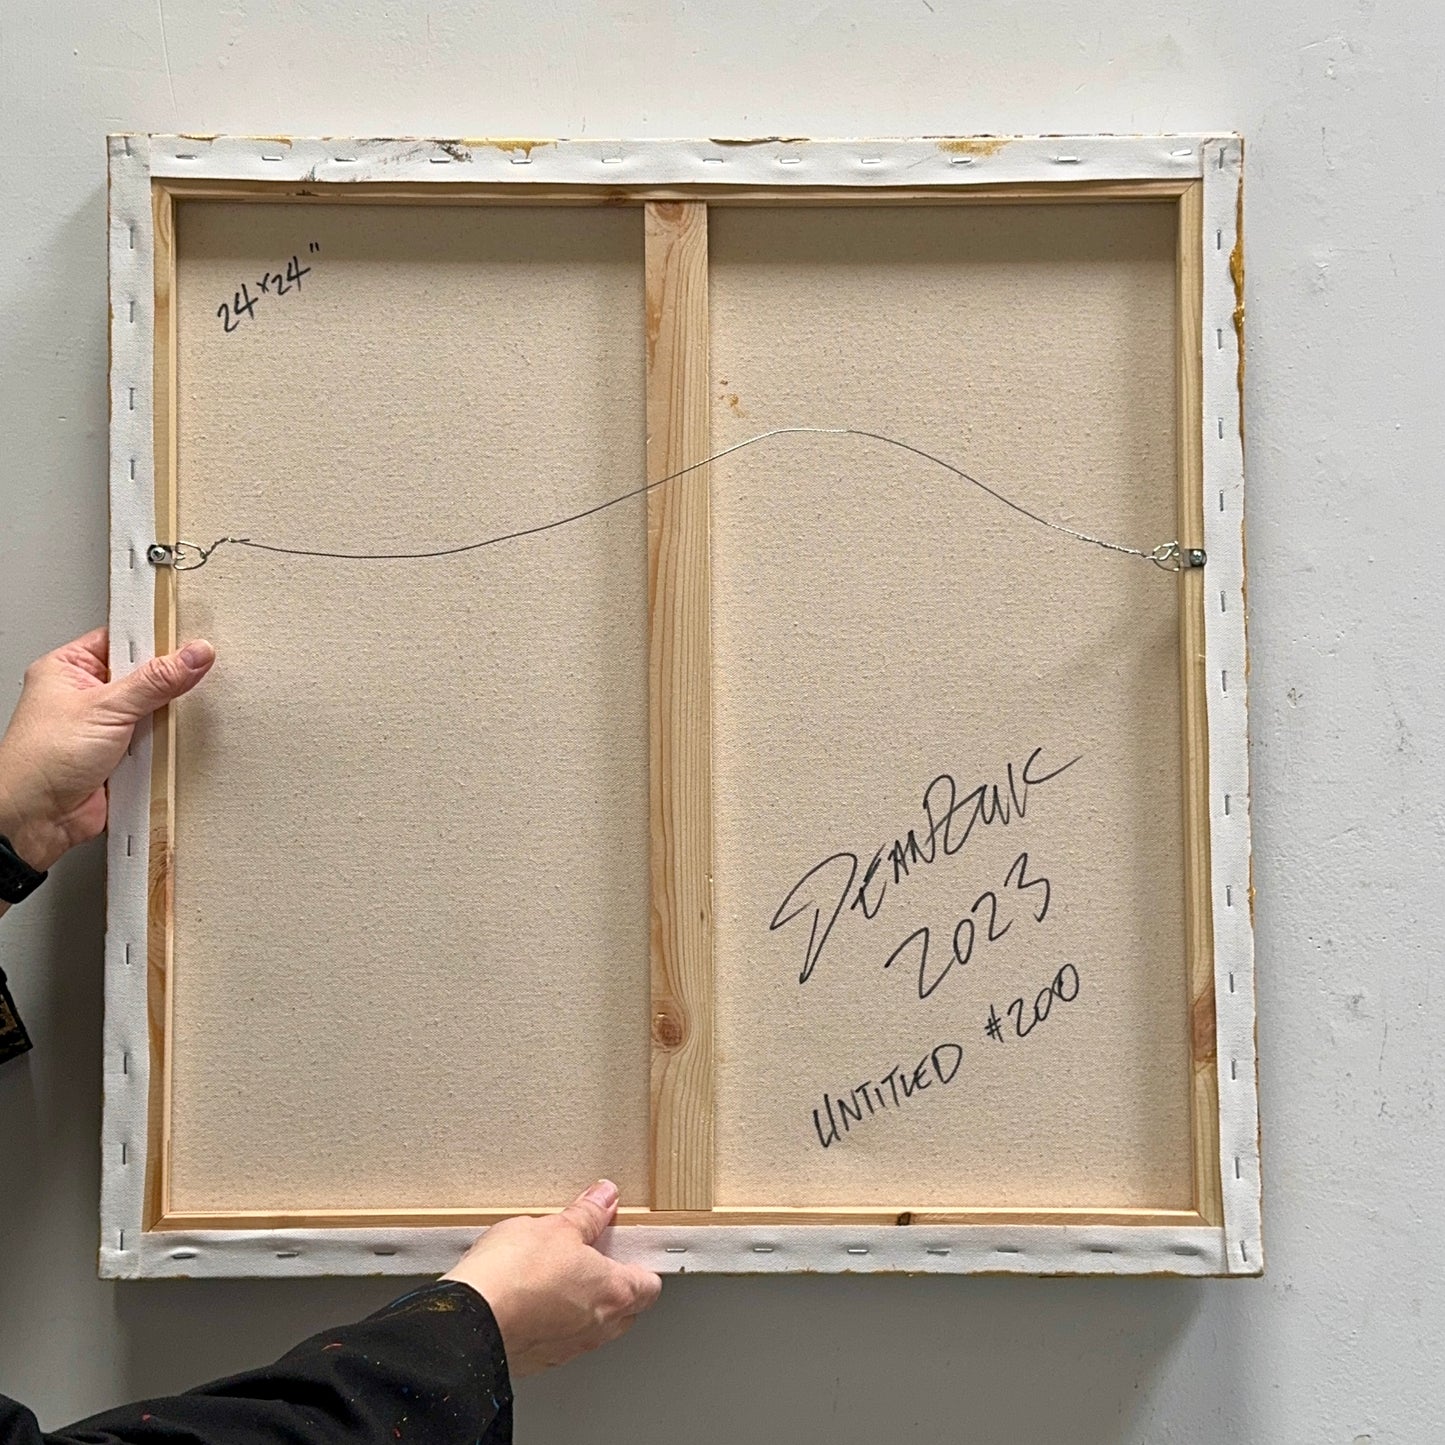 24x24"
DEAN ZUK
2023
UNTITLED #200